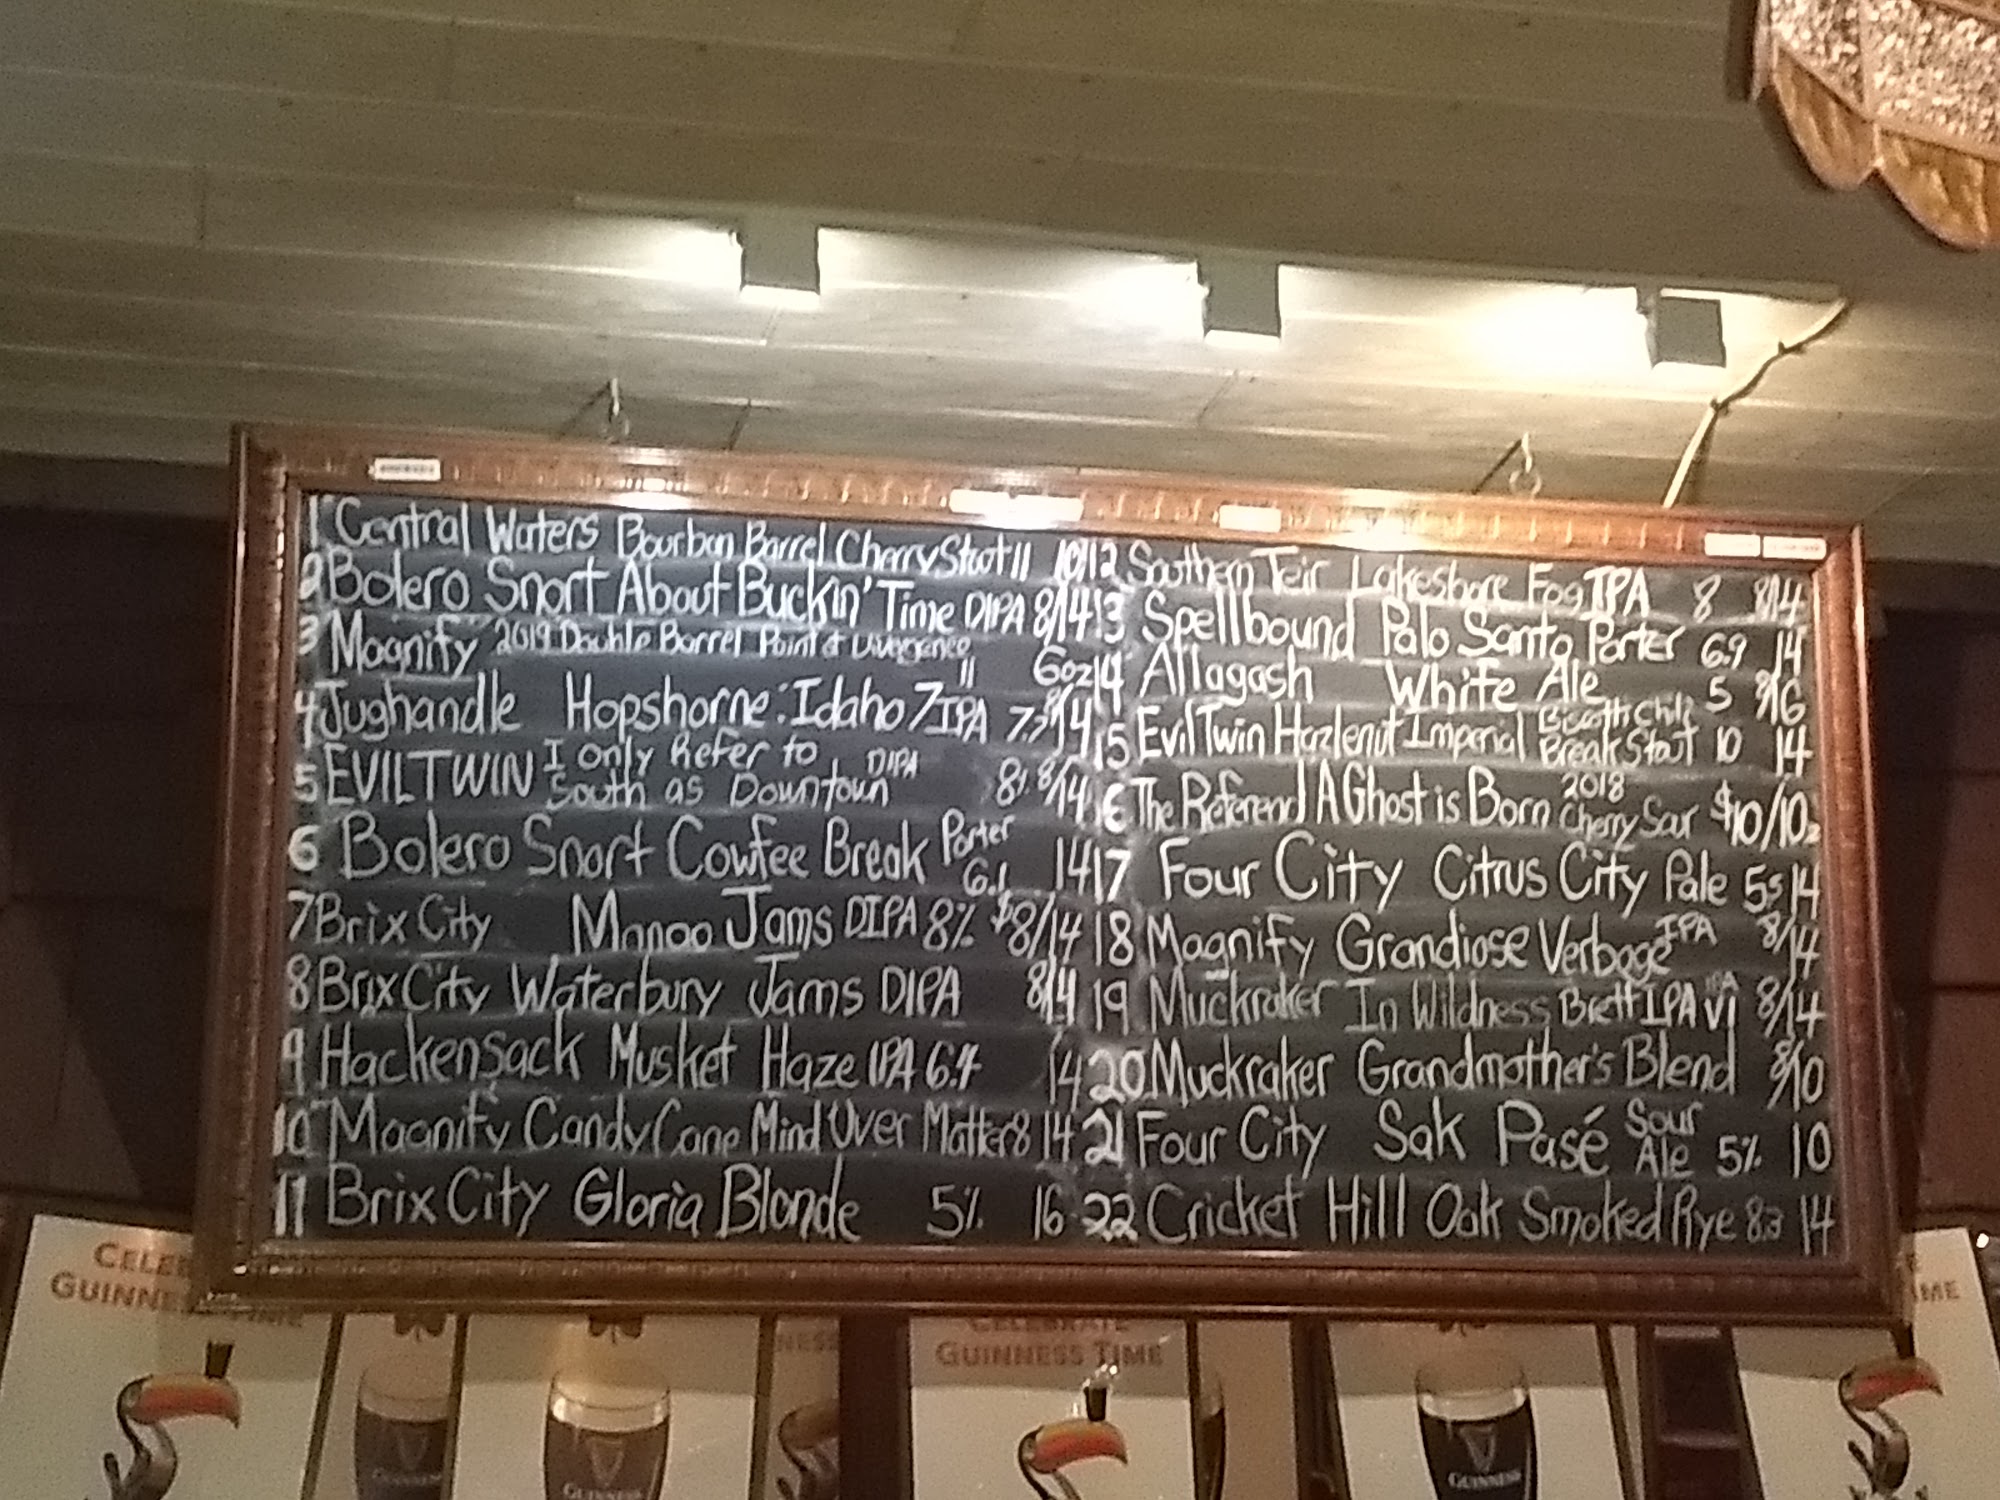 1 Central Waters Bourbon Barrel Cherry Stout 11 10
2 Bolero Snort About Buckin' Time DIPA 8/14
3 Magnify 2019 Double Barrel Point of Divergence
11 6oz
4 Jughandle Hopshorne: Idaho 7 IPA 7.7 8/14
5 EVIL TWIN I only Refer to DIPA
South as Downtown 8% 8/14
6 Bolero Snort Cowfee Break Porter
6.1 14
7 Brix City Mango Jams DIPA 8% $8/14
8 Brix City Waterbury Jams DIPA 8/14
9 Hackensack Musket Haze IPA 6.4 14
10 Magnify Candy Cane Mind Over Matter 8 14
11 Brix City Gloria Blonde 5% 16
12 Southern Teir Lakeshore Fog IPA 8 8/14
13 Spellbound Palo Santo Porter 6.9 14
14 Allagash White Ale 5 16
15 Evil Twin Hazlenut Imperial Biscotti
Break Stout 10 14
16 The Referend A Ghost is Born 2018
Cherry Sour $10/10z
17 Four City Citrus City Pale 5.5 14
18 Magnify Grandiose Verbage IPA 8/14
19 Muckraker In Wildness Brett IPA VI 8/14
20 Muckraker Grandmother's Blend 8/10
21 Four City Sak Pasé Sour
Ale 5% 10
22 Cricket Hill Oak Smoked Rye 8.3 14
CELEBRATE
GUINNESS TIME
GUINNESS
GUINNESS
CELEBRATE
GUINNESS TIME
GUINNESS